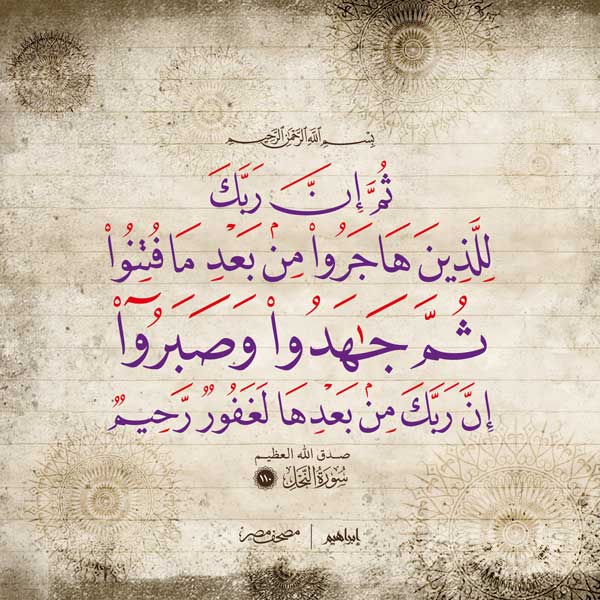 بِسْمِ اللَّهِ الرَّحْمَٰنِ الرَّحِيمِ
ثُمَّ إِنَّ رَبَّكَ
لِلَّذِينَ هَاجَرُوا۟ مِنۢ بَعْدِ مَا فُتِنُوا۟
ثُمَّ جَٰهَدُوا۟ وَصَبَرُوٓا۟
إِنَّ رَبَّكَ مِنۢ بَعْدِهَا لَغَفُورٌ رَّحِيمٌ
صدق الله العظيم
سُورَةُ النَّحْلِ ١١٠
إبراهيم | مصحف مصر